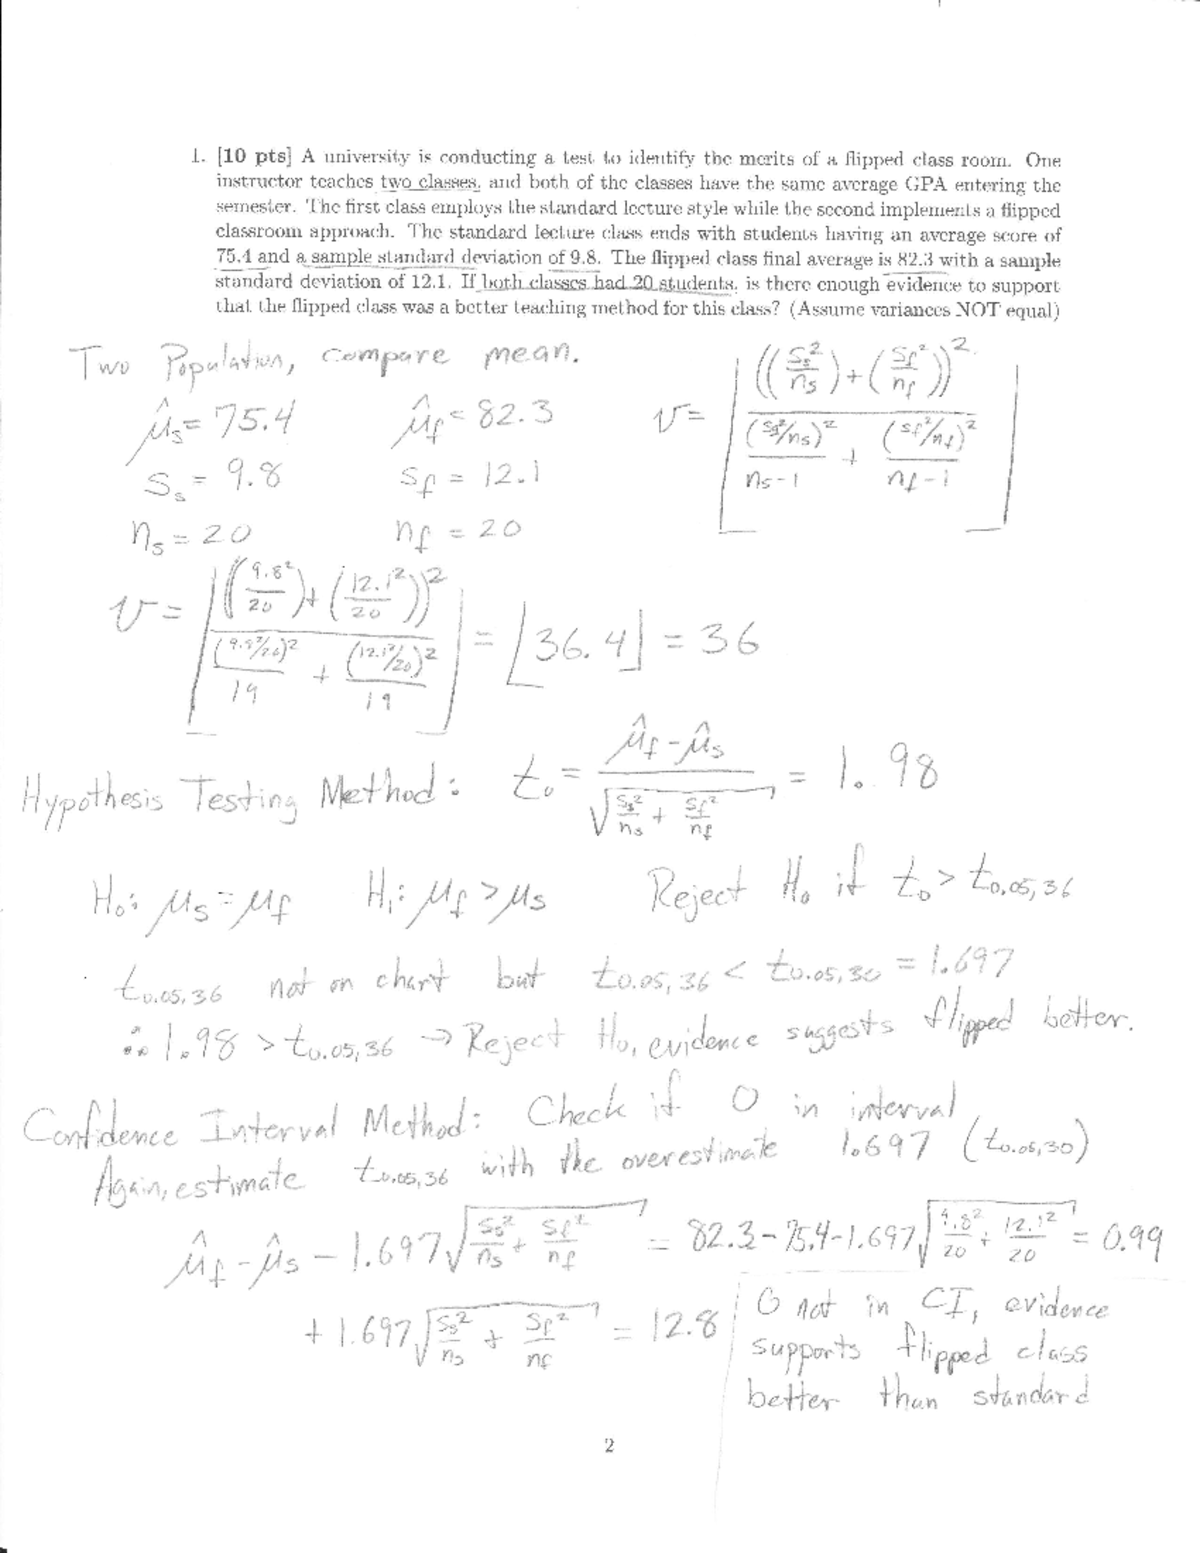 1. [10 pts] A university is conducting a test to identify the merits of a flipped class room. One
instructor teaches two classes, and both of the classes have the same average GPA entering the
semester. The first class employs the standard lecture style while the second implements a flipped
classroom approach. The standard lecture class ends with students having an average score of
75.4 and a sample standard deviation of 9.8. The flipped class final average is 82.3 with a sample
standard deviation of 12.1. If both classes had 20 students, is there enough evidence to support
that the flipped class was a better teaching method for this class? (Assume variances NOT equal)
Two Population, compare mean.
μ̂s = 75.4 μ̂f = 82.3
Ss = 9.8 Sf = 12.1
ns = 20 nf = 20
v = ⌊((Ss²/ns) + (Sf²/nf))² / ((Ss²/ns)²/(ns-1) + (Sf²/nf)²/(nf-1))⌋
v = ⌊((9.8²/20) + (12.1²/20))² / ((9.8²/20)²/19 + (12.1²/20)²/19)⌋ = ⌊36.4⌋ = 36
Hypothesis Testing Method: t₀ = (μ̂f - μ̂s) / √(Ss²/ns + Sf²/nf) = 1.98
H₀: μs = μf H₁: μf > μs Reject H₀ if t₀ > t0.05,36
t0.05,36 not on chart but t0.05,36 < t0.05,30 = 1.697
∴ 1.98 > t0.05,36 → Reject H₀, evidence suggests flipped better.
Confidence Interval Method: Check if 0 in interval
Again, estimate t0.05,36 with the overestimate 1.697 (t0.05,30)
μ̂f - μ̂s - 1.697√(Ss²/ns + Sf²/nf) = 82.3-75.4-1.697√(9.8²/20 + 12.1²/20) = 0.99
+ 1.697√(Ss²/ns + Sf²/nf) = 12.8
0 not in CI, evidence
supports flipped class
better than standard
2